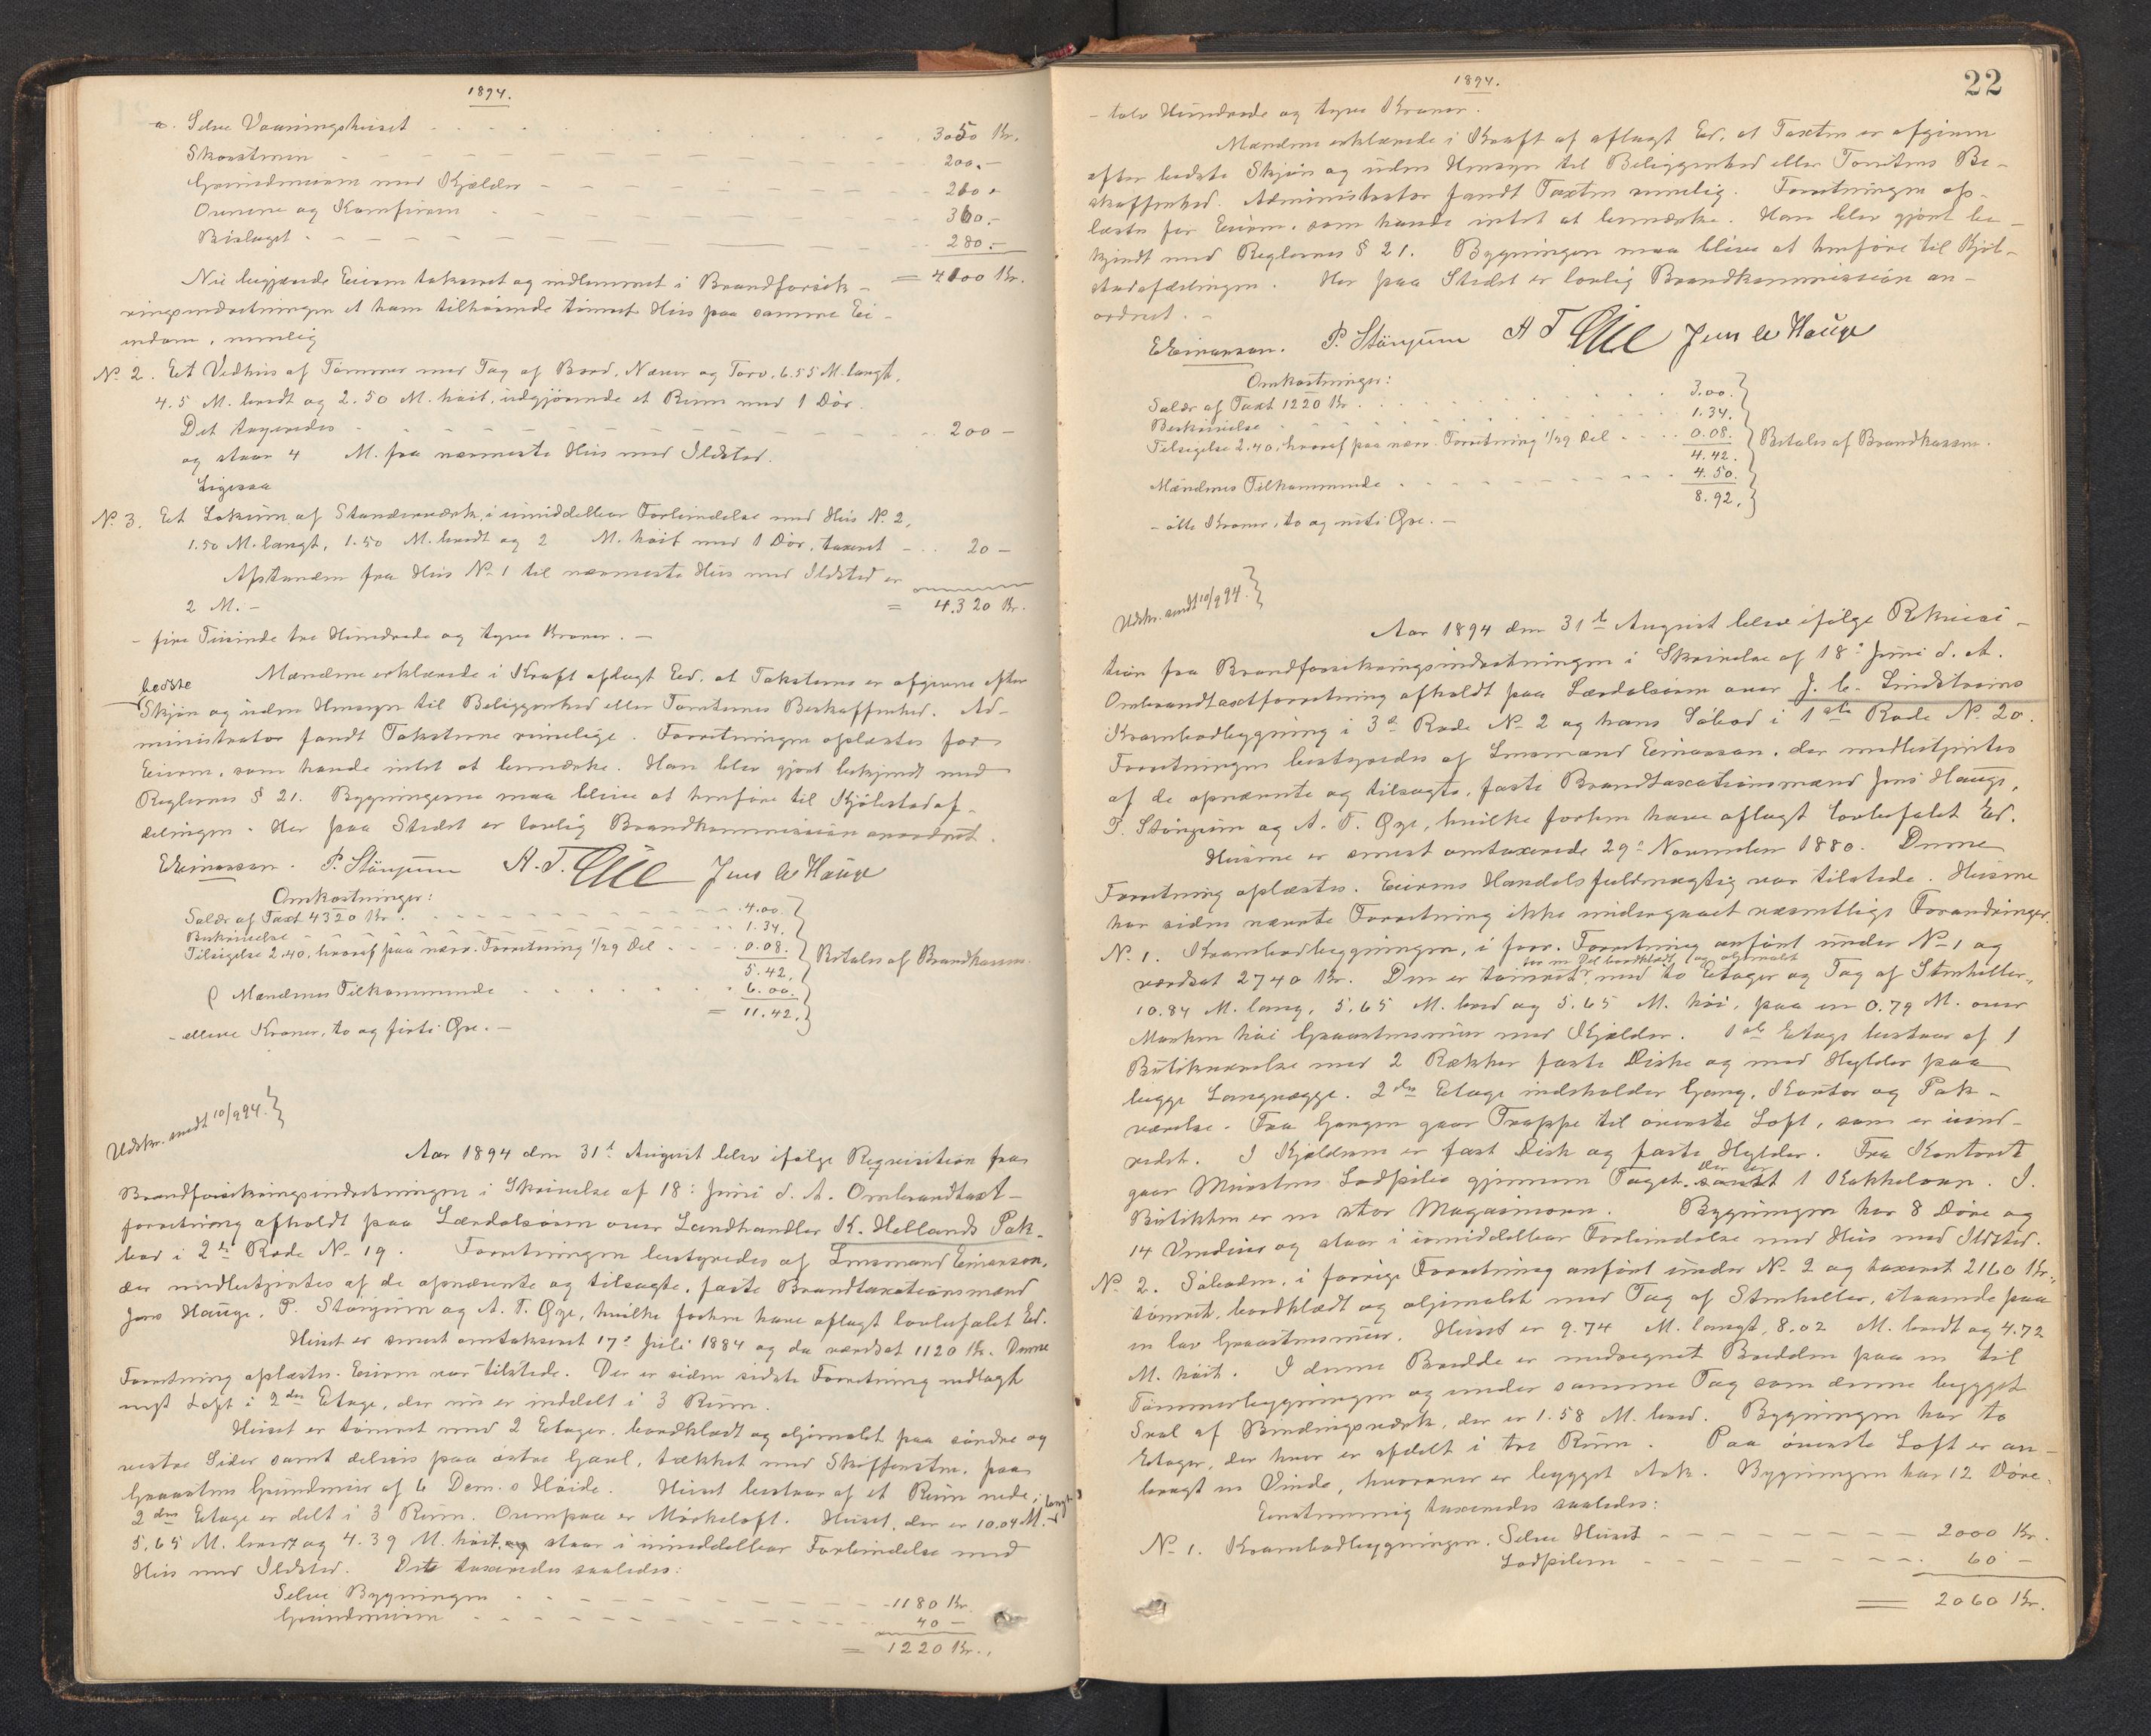 1894.
a. Selve Vaaningshuset 3050 Kr.
Skorstenen 200.-
Grundmuren med Kjælder 260 -
Ovnene og Komfuren 360.-
Bislaget 280.-
= 4100 Kr.
Nu begjærede Eieren takseret og indlemmet i Brandforsik-
ringsindretningen et ham tilhørende tømret Hus paa samme Ei-
endom, nemlig
No 2. Et Vedhus af Tømmer med Tag af Bord, Næver og Torv, 6.55 M. langt,
4.5 M. bredt og 2.50 M. høit, udgjørende et Rum med 1 Dør.
Det taxeredes 200 -
og staar 4 M. fra nærmeste Hus med Ildsted.
Ligesaa
No 3. Et Lokum af Standerværk, i umiddelbar Forbindelse med Hus No 2,
1.50 M. langt, 1.50 M. bredt og 2 M. høit med 1 Dør, taxeret 20 -
Afstanden fra Hus No 1 til nærmeste Hus med Ildsted er
2 M. - = 4.320 Kr.
- fire Tusinde tre Hundrede og tyve Kroner. -
Mændene erklærede i Kraft aflagt Eed, at Taksterne er afgivne efter
bedste
Skjøn og uden Hensyn til Beliggenhed eller Tomternes Beskaffenhed. Ad-
ministrator fandt Taksterne rimelige. Forretningen oplæstes for
Eieren, som havde intet at bemærke. Han blev gjort bekjendt med
Reglernes § 21. Bygningerne maa blive at henføre til Kjøbstadaf-
delingen. Her paa Stedet er lovlig Brandkommission anordnet.
E. Einarson. P. Stönjum A. T. Øie Jens A Hauge
Omkostninger:
Salær af Taxt 4320 Kr. 4.00.
Beskrivelse 1.34.
Tilsigelse 2.40, hvoraf paa nærv. Forretning 1/29 Del 0.08.
5.42. Betales af Brandkassen.
Mændenes Tilkommende 6.00.
= 11.42.
- elleve Kroner, to og firti Øre. -
Udskr. sendt 10/9 94.
Aar 1894 den 31te August blev ifølge Requisition fra
Brandforsikringsindretningen i Skrivelse af 18: Juni d. A. Ombrandtaxt-
forretning afholdt paa Lærdalsøren over Landhandler K. Hellands Pak-
bod i 2de Rode No 19. Forretningen bestyredes af Lensmand Einarson,
der medbetjentes af de opnævnte og tilsagte, faste Brandtaxationsmænd
Jens Hauge, P. Stönjum og A. T. Øye, hvilke forhen have aflagt lovbefalet Ed.
Huset er senest omtakseret 17de Juli 1884 og da værdsat 1120 Kr. Denne
Forretning oplæstes. Eieren var tilstede. Der er siden sidste Forretning nedlagt
nyt Loft i 2den Etage, der nu er inddelt i 3 Rum.
Huset er tømret med 2 Etager, bordklædt og oljemalet paa søndre og
vestre Sider samt delvis paa østre Gavl, tækket med Skifferstén, paa
Graastens Grundmur af 6 Dcm.s Høide. Huset bestaar af et Rum nede;
2den Etage er delt i 3 Rum. Ovenpaa er Mørkeloft. Huset, der er 10.04 M. langt
5.65 M. bredt og 4.39 M. høit, staar i umiddelbar Forbindelse med
Hus med Ildsted. Det taxeredes saaledes:
Selve Bygningen 1180 Kr.
Grundmuren 40 -
= 1220 Kr.
22
1894.
- tolv Hundrede og tyve Kroner.
Mændene erklærede i Kraft af aflagt Ed, at Taxten er afgiven
efter bedste Skjøn og uden Hensyn til Beliggenhed eller Tomtens Be-
skaffenhed. Administrator fandt Taxten rimelig. Forretningen op-
læstes for Eieren, som havde intet at bemærke. Han blev gjort be-
kjendt med Reglernes § 21. Bygningen maa blive at henføre til Kjøb-
stadafdelingen. Her paa Stedet er lovlig Brandkommission an-
ordnet. -
E. Einarson. P. Stönjum A T Øie Jens A Hauge
Omkostninger:
Salær af Taxt 1220 Kr. 3.00.
Beskrivelse 1.34.
Tilsigelse 2.40, hvoraf paa nærv. Forretning 1/29 Del 0.08. Betales af Brandkassen.
4.42.
Mændenes Tilkommende 4.50.
8.92.
- otte Kroner, to og niti Øre. -
Udskr. sendt 10/9 94.
Aar 1894 den 31te August blev ifølge Rekvisi-
tion fra Brandforsikringsindretningen i Skrivelse af 18: Juni d. A.
Ombrandtaxtforretning afholdt paa Lærdalsøren over J. C. Lindstrøms
Krambodbygning i 3de Rode No 2 og hans Søbod i 1ste Rode No 20.
Forretningen bestyredes af Lensmand Einarson, der medbetjentes
af de opnævnte og tilsagte, faste Brandtaxationsmænd Jens Hauge,
P. Stönjum og A. T. Øye, hvilke forhen have aflagt lovbefalet Ed.
Husene er senest omtaxerede 29: November 1880. Denne
Forretning oplæstes. Eierens Handelsfuldmægtig var tilstede. Husene
har siden nævnte Forretning ikke undergaaet væsentlige Forandringer.
No 1. Krambodbygningen, i forr. Forretning anført under No 1 og
for en Del bordklædt og oljemalet
værdsat 2740 Kr. Den er tømret, med to Etager og Tag af Stenheller,
10.84 M. lang, 5.65 M. bred og 5.65 M. høi, paa en 0.79 M. over
Marken høi Graastensmur med Kjælder. 1ste Etage bestaar af 1
Butikværelse med 2 Rækker faste Diske og med Hylder paa
begge Langvægge. 2den Etage indeholder Gang, Kontor og Pak-
værelse. Fra Gangen gaar Trappe til øverste Loft, som er uind-
redet. I Kjælderen er fast Disk og faste Hylder. Fra Kontoret
gaar Murstens Lodpibe gjennem Taget. Der er 1 Kakkelovn. I
Butikken er en stor Magasinovn. Bygningen har 8 Døre og
14 Vinduer og staar i umiddelbar Forbindelse med Hus med Ildsted.
No 2. Søboden, i forrige Forretning anført under No 2 og taxeret 2160 Kr.,
tømret, bordklædt og oljemalet med Tag af Stenheller, staaende paa
en lav Graastensmur. Huset er 9.74 M. langt, 8.02 M. bredt og 4.72
M. høit. I denne Bredde er medregnet Bredden paa en til
Tømmerbygningen og under samme Tag som denne bygget
Sval af Bindingsværk, der er 1.58 M. bred. Bygningen har to
Etager, der hver er afdelt i tre Rum. Paa øverste Loft er an-
bragt en Vinde, hvorover er bygget Ark. Bygningen har 12 Døre.
Enstemmig taxeredes saaledes:
No 1. Krambodbygningen. Selve Huset 2000 Kr.
Lodpiben 60 -
= 2060 Kr.